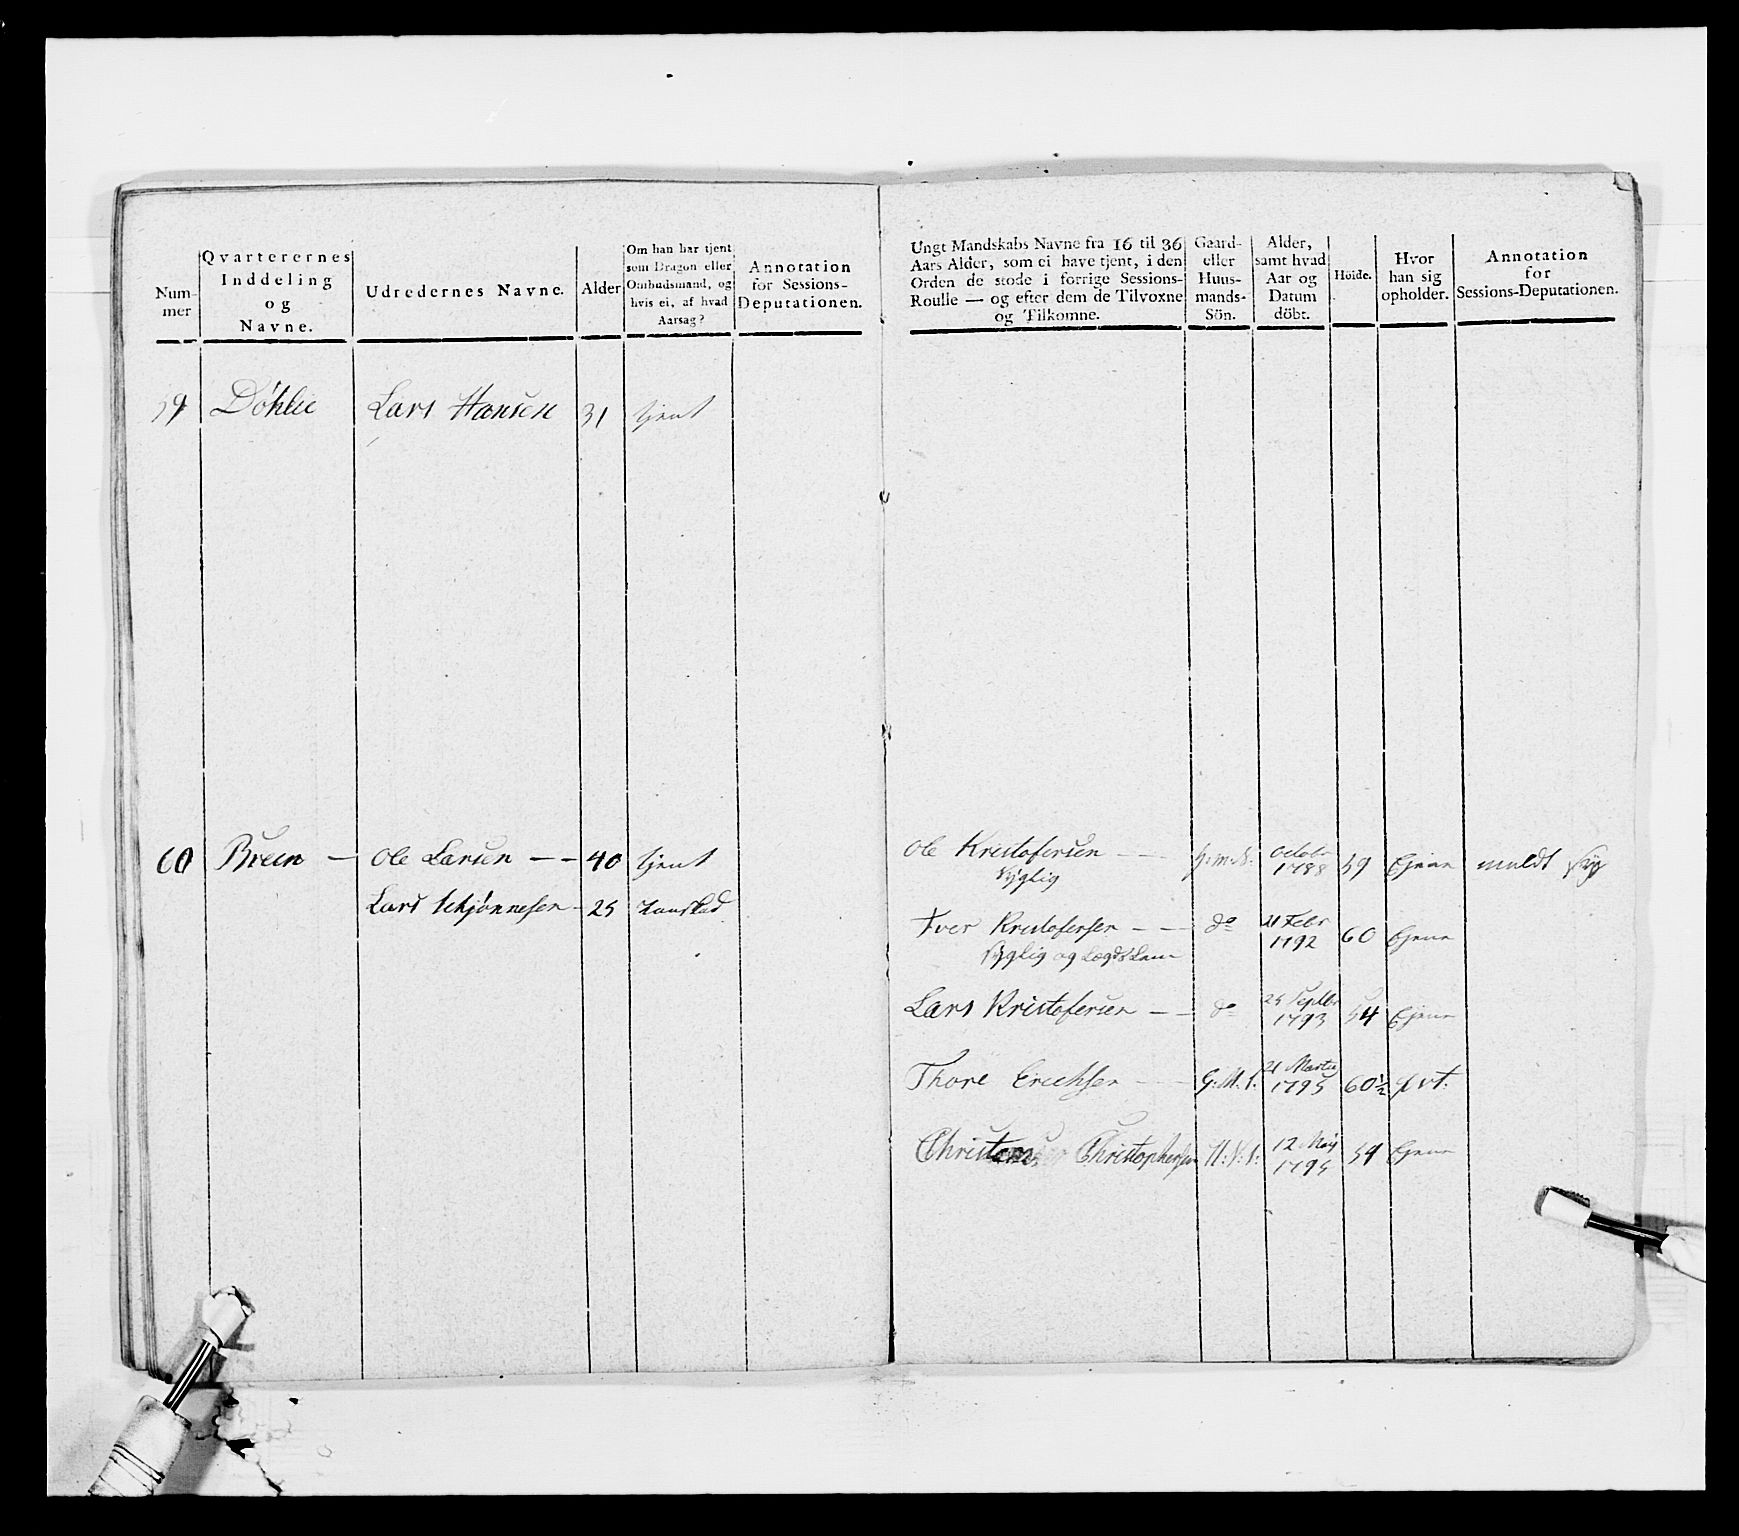 Num-
mer
Qvarterernes
Inddeling
og
Navne.
Udredernes Navne.
Alder
Om han har tjent
som Dragon eller
Ombudsmand, og
hvis ei, af hvad
Aarsag?
Annotation
for Sessions-
Deputationen.
59 Döhlie Lars Hansen 31 tjent
60 Breen — Ole Larsen — — 40 tjent
Lars Schjønnesen - 25
Ungt Mandskabs Navne fra 16 til 36
Aars Alder, som ei have tjent, i den
Orden de stode i forrige Sessions-
Roulle — og efter dem de Tilvoxne
og Tilkomne.
Gaard-
eller
Huus-
mands-
Sön.
Alder,
samt hvad
Aar og
Datum
döbt.
Höide.
Hvor
han sig
opholder.
Annotation
for
Sessions-Deputationen.
Ole Kristofersen — — octobr 1788 59 Ejeren
syglig
Iver Kristofersen — — do 21 Febr 1792 60 Ejeren
syglig og
Lars Kristofersen — — do 25 Septbr 1793 54 Ejeren
Thore Erichsen — — G: M: S: 21 Martii 1795 60½ qvt:
Christophersen 12 May 1795 59 Ejeren